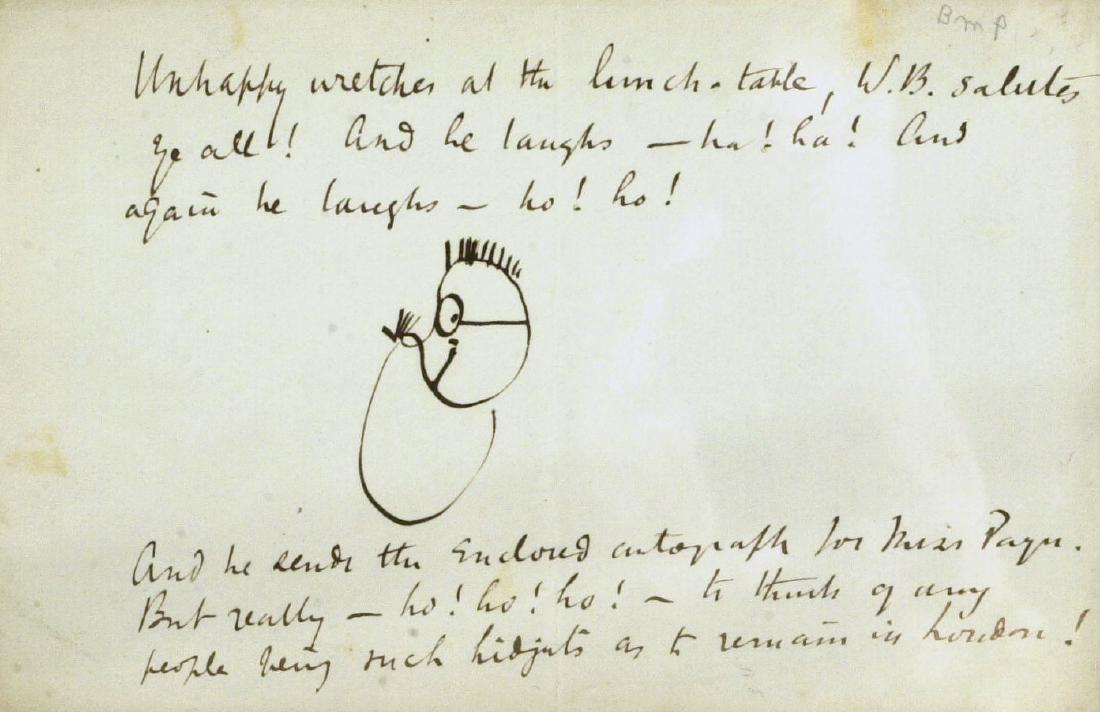 BMP
Unhappy wretches at the lunch-table, W.B. salutes
ye all! And he laughs – ha! ha! And
again he laughs – ho! ho!
And he sends the enclosed autograph for Miss Payn.
But really – ho! ho! ho! – to think of any
people being such hidjuts as to remain in London!